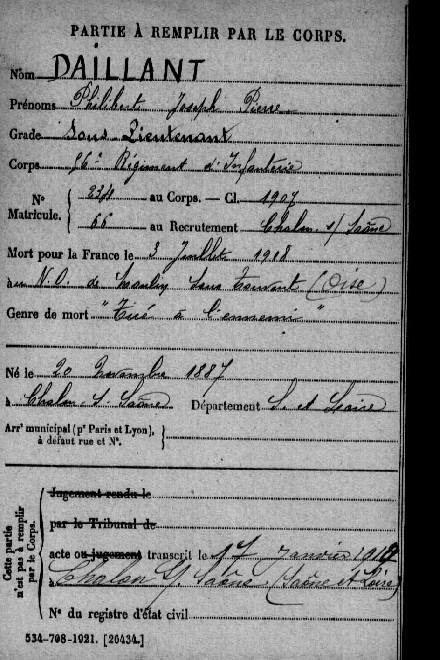 PARTIE À REMPLIR PAR LE CORPS.
Nom DAILLANT
Prénoms Philibert Joseph Pierre
Grade Sous Lieutenant
Corps 56e Régiment d'Infanterie
N° Matricule. { 234 au Corps. — Cl. 1907
66 au Recrutement Chalon s/ Saône
Mort pour la France le 3 Juillet 1918
à au N.O. de sous Touvent (Oise)
Genre de mort "Tué à l'ennemi"
Né le 20 1887
à Chalon s. Saône Département S. et Loire
Arrt municipal (pr Paris et Lyon), à défaut rue et N°. }
Cette partie n'est pas à remplir par le Corps.
Jugement rendu le
par le Tribunal de
acte ou jugement transcrit le 17 Janvier 1919
à Chalon S/ Saône (Saône et Loire)
N° du registre d'état civil
534-708-1921. [26434.]